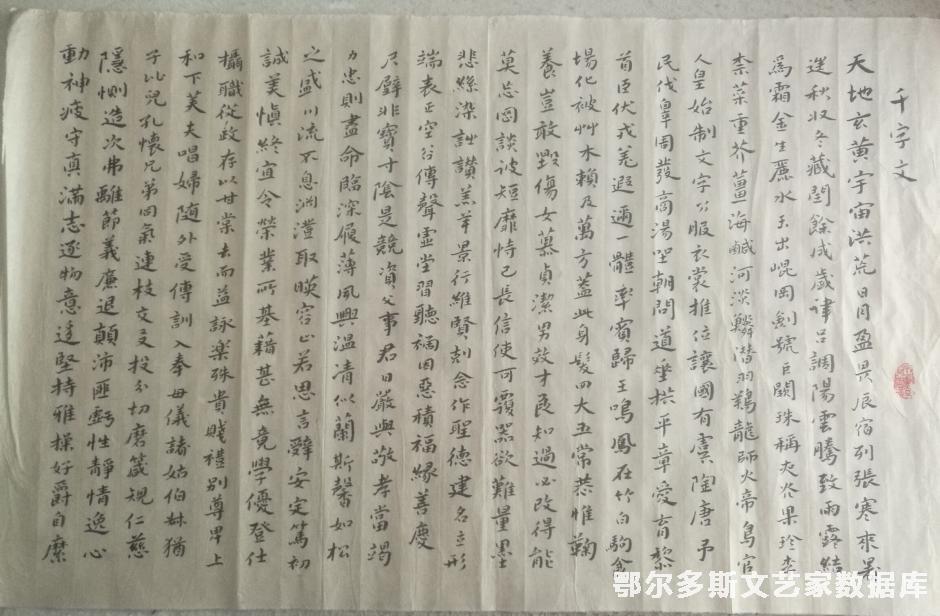 千字文
天地玄黄宇宙洪荒日月盈昃辰宿列張寒來暑
進秋収冬藏閏餘成歲律吕調陽雲騰致雨露結
為霜金生麗水玉出崐岡劍號巨闕珠稱夜光果珍李
柰菜重芥薑海鹹河淡鱗潜羽翔龍師火帝鳥官
人皇始制文字乃服衣裳推位讓國有虞陶唐弔
民伐辠周發商湯坐朝問道垂拱平章愛育黎
首臣伏戎羌遐邇一體率賓歸王鳴鳳在竹白駒食
場化被艸木賴及萬方蓋此身髮四大五常恭惟鞠
養豈敢毀傷女慕貞潔男效才良知過必改得能
莫忘罔談彼短靡恃己長信使可覆器欲難量墨
悲絲染詩讃羔羊景行維賢剋念作聖德建名立形
端表正空谷傳聲虛堂習聽禍因惡積福緣善慶
尺璧非寶寸陰是競資父事君曰嚴與敬孝當竭
力忠則盡命臨深履薄夙興温凊似蘭斯馨如松
之盛川流不息淵澄取暎容止若思言辭安定篤初
誠美慎終宜令榮業所基藉甚無竟學優登仕
攝職從政存以甘棠去而益詠楽殊貴賤禮别尊卑上
和下芙夫唱婦随外受傅訓入奉母儀諸姑伯叔猶
子比兒孔懷兄弟同氣連枝交友投分切磨箴規仁慈
隱惻造次弗離節義廉退顛沛匪虧性靜情逸心
動神疲守真滿志逐物意迻堅持雅操好爵自縻
鄂尔多斯文艺家数据库